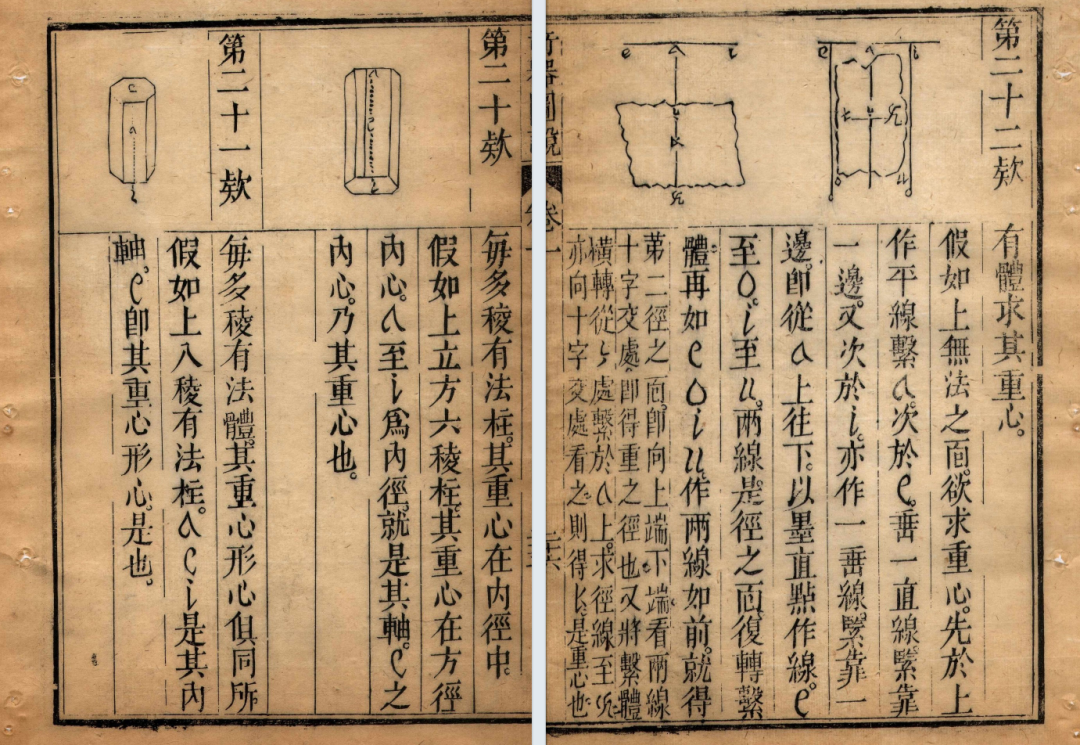 第二十二欵
有體求其重心。
假如上無法之面。欲求重心。先於上
作平線繫a。次於e。垂一直線緊靠
一邊。又次於i。亦作一垂線緊靠一
邊。即從a上往下。以墨直點作線。e
至o。i至u。兩線是徑之面。復轉繫
體再如e o i u。作兩線如前。就得
第二徑之面。即向上端下端看兩線
十字交處。即得重之徑也。又將繫體
橫轉從 處繫於a上。求徑線至
亦向十字交處看之。則得 是重心也
奇器圖說
卷一
第二十欵
每多稜有法柱。其重心在內徑中。
假如上立方六稜柱。其重心在方徑
內心。a至i為內徑。就是其軸。e之
內心。乃其重心也。
第二十一欵
每多稜有法體。其重心形心俱同所
假如上八稜有法柱。a e i是其內
軸。e即其重心形心。是也。